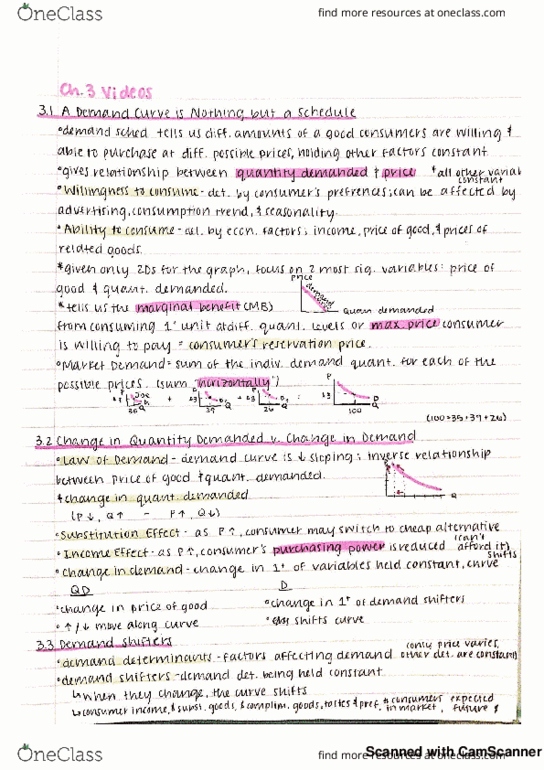 OneClass
find more resources at oneclass.com
Ch.3 Videos
3.1 A Demand Curve is Nothing but a Schedule
•demand sched tells us diff. amounts of a good consumers are willing &
able to purchase at diff. possible prices, holding other factors constant.
•gives relationship between quantity demanded & price *all other variab
constant
•Willingness to consume - det. by consumer's prefrences; can be affected by
advertising, consumption trend, & seasonality.
•Ability to consume - det. by econ. factors; income, price of good, & prices of
related goods.
*given only 2Ds for the graph, focus on 2 most sig. variables: price of
good & quant. demanded.
Price
*tells us the marginal benefit (MB)
Quan demanded
from consuming 1+ unit at diff. quant. levels or max. price consumer
is willing to pay = consumer's reservation price.
•Market Demand = sum of the indiv. demand quant. for each of the
possible prices. (sum "horizontally")
P
D
Q
35 + 39 + 26 = 100
(100=35+39+26)
3.2 Change in Quantity Demanded v. Change in Demand
•Law of Demand - demand curve is ↓ sloping: inverse relationship
between price of good & quant. demanded.
*change in quant. demanded
(P↓, Q↑ - P↑, Q↓)
Q
•Substitution Effect - as P↑, consumer may switch to cheap alternative
•Income Effect - as P↑, consumer's purchasing power is reduced (can't afford it)
•change in demand - change in 1+ of variables held constant, curve shifts
QD D
•change in price of good •change in 1+ of demand shifters
•↑/↓ move along curve •shifts curve
3.3 Demand Shifters
•demand determinants - factors affecting demand (only price varies, other det. are constant)
•demand shifters - demand det. being held constant
↳when they change, the curve shifts
↳consumer income, & subst. goods, & complim. goods, tastes & pref, & consumers in market, expected future $
OneClass
find more resources at oneclass.com
Scanned with CamScanner